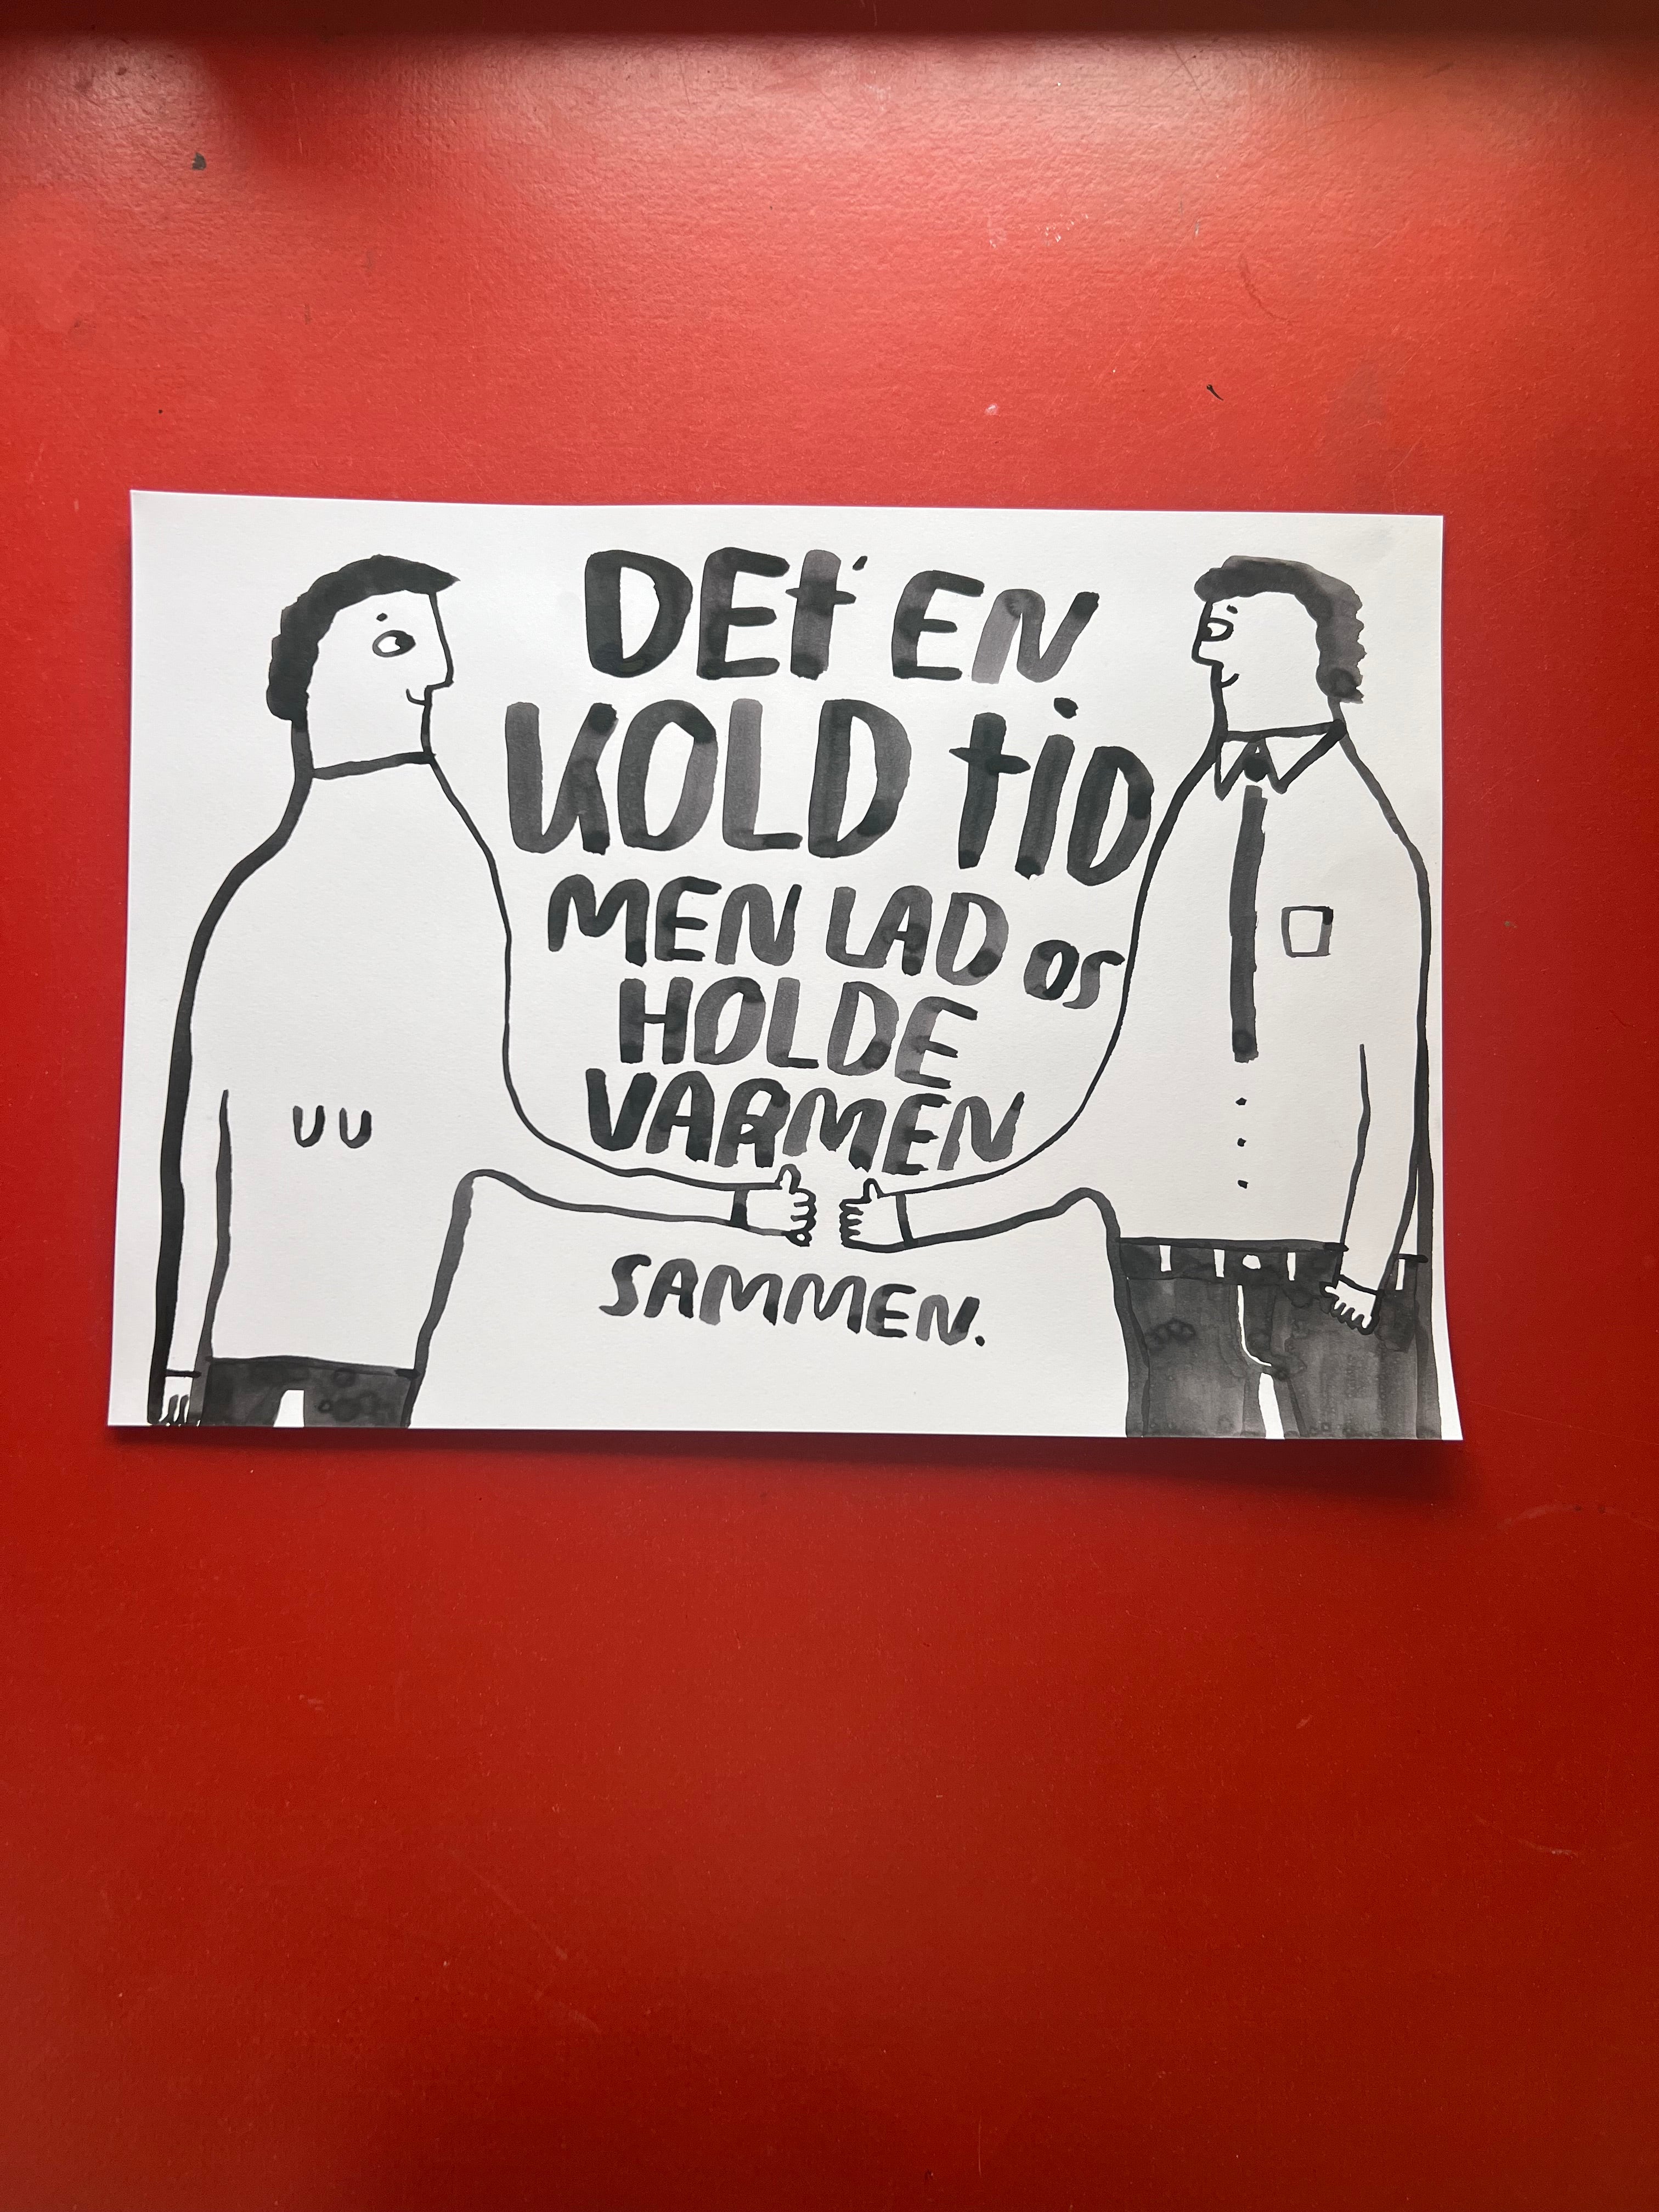 DEt' EN
KOLD tiD
MEN LAD OS
HOLDE
VARMEN
SAMMEN.